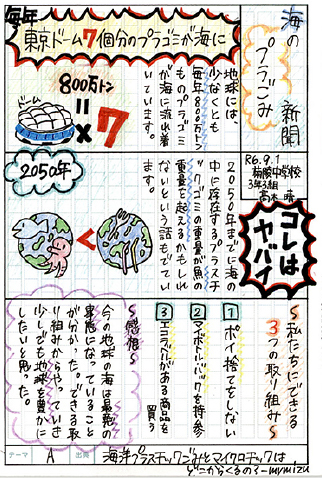 海の
プラごみ
新聞
R6.9.1
3年3組
毎年
東京ドーム7個分のプラゴミが海に
ドーム
800万トン
=
×7
地球には、
少なくとも
毎年800万トン
ものプラゴミ
が海に流れ着
いています。
コレは
ヤバイ
2050年までに海の
中に存在するプラスチ
ックゴミの重量が魚の
重量を超えるかもしれ
ないという話もでてい
ます。
2050年
<
~私たちにできる
3つの取り組み~
1 ポイ捨てをしない
2 マイボトル・バックを持参
3 エコラベルがある商品を
買う
~感想~
今の地球の海は最悪の
事態になっていること
が分かった。できる取
り組みからやっていき
少しでも地球を豊かに
したいと思った。
テーマ A 出典 海洋プラスチックごみとマイクロチックは
どこからくるの?-mymizu